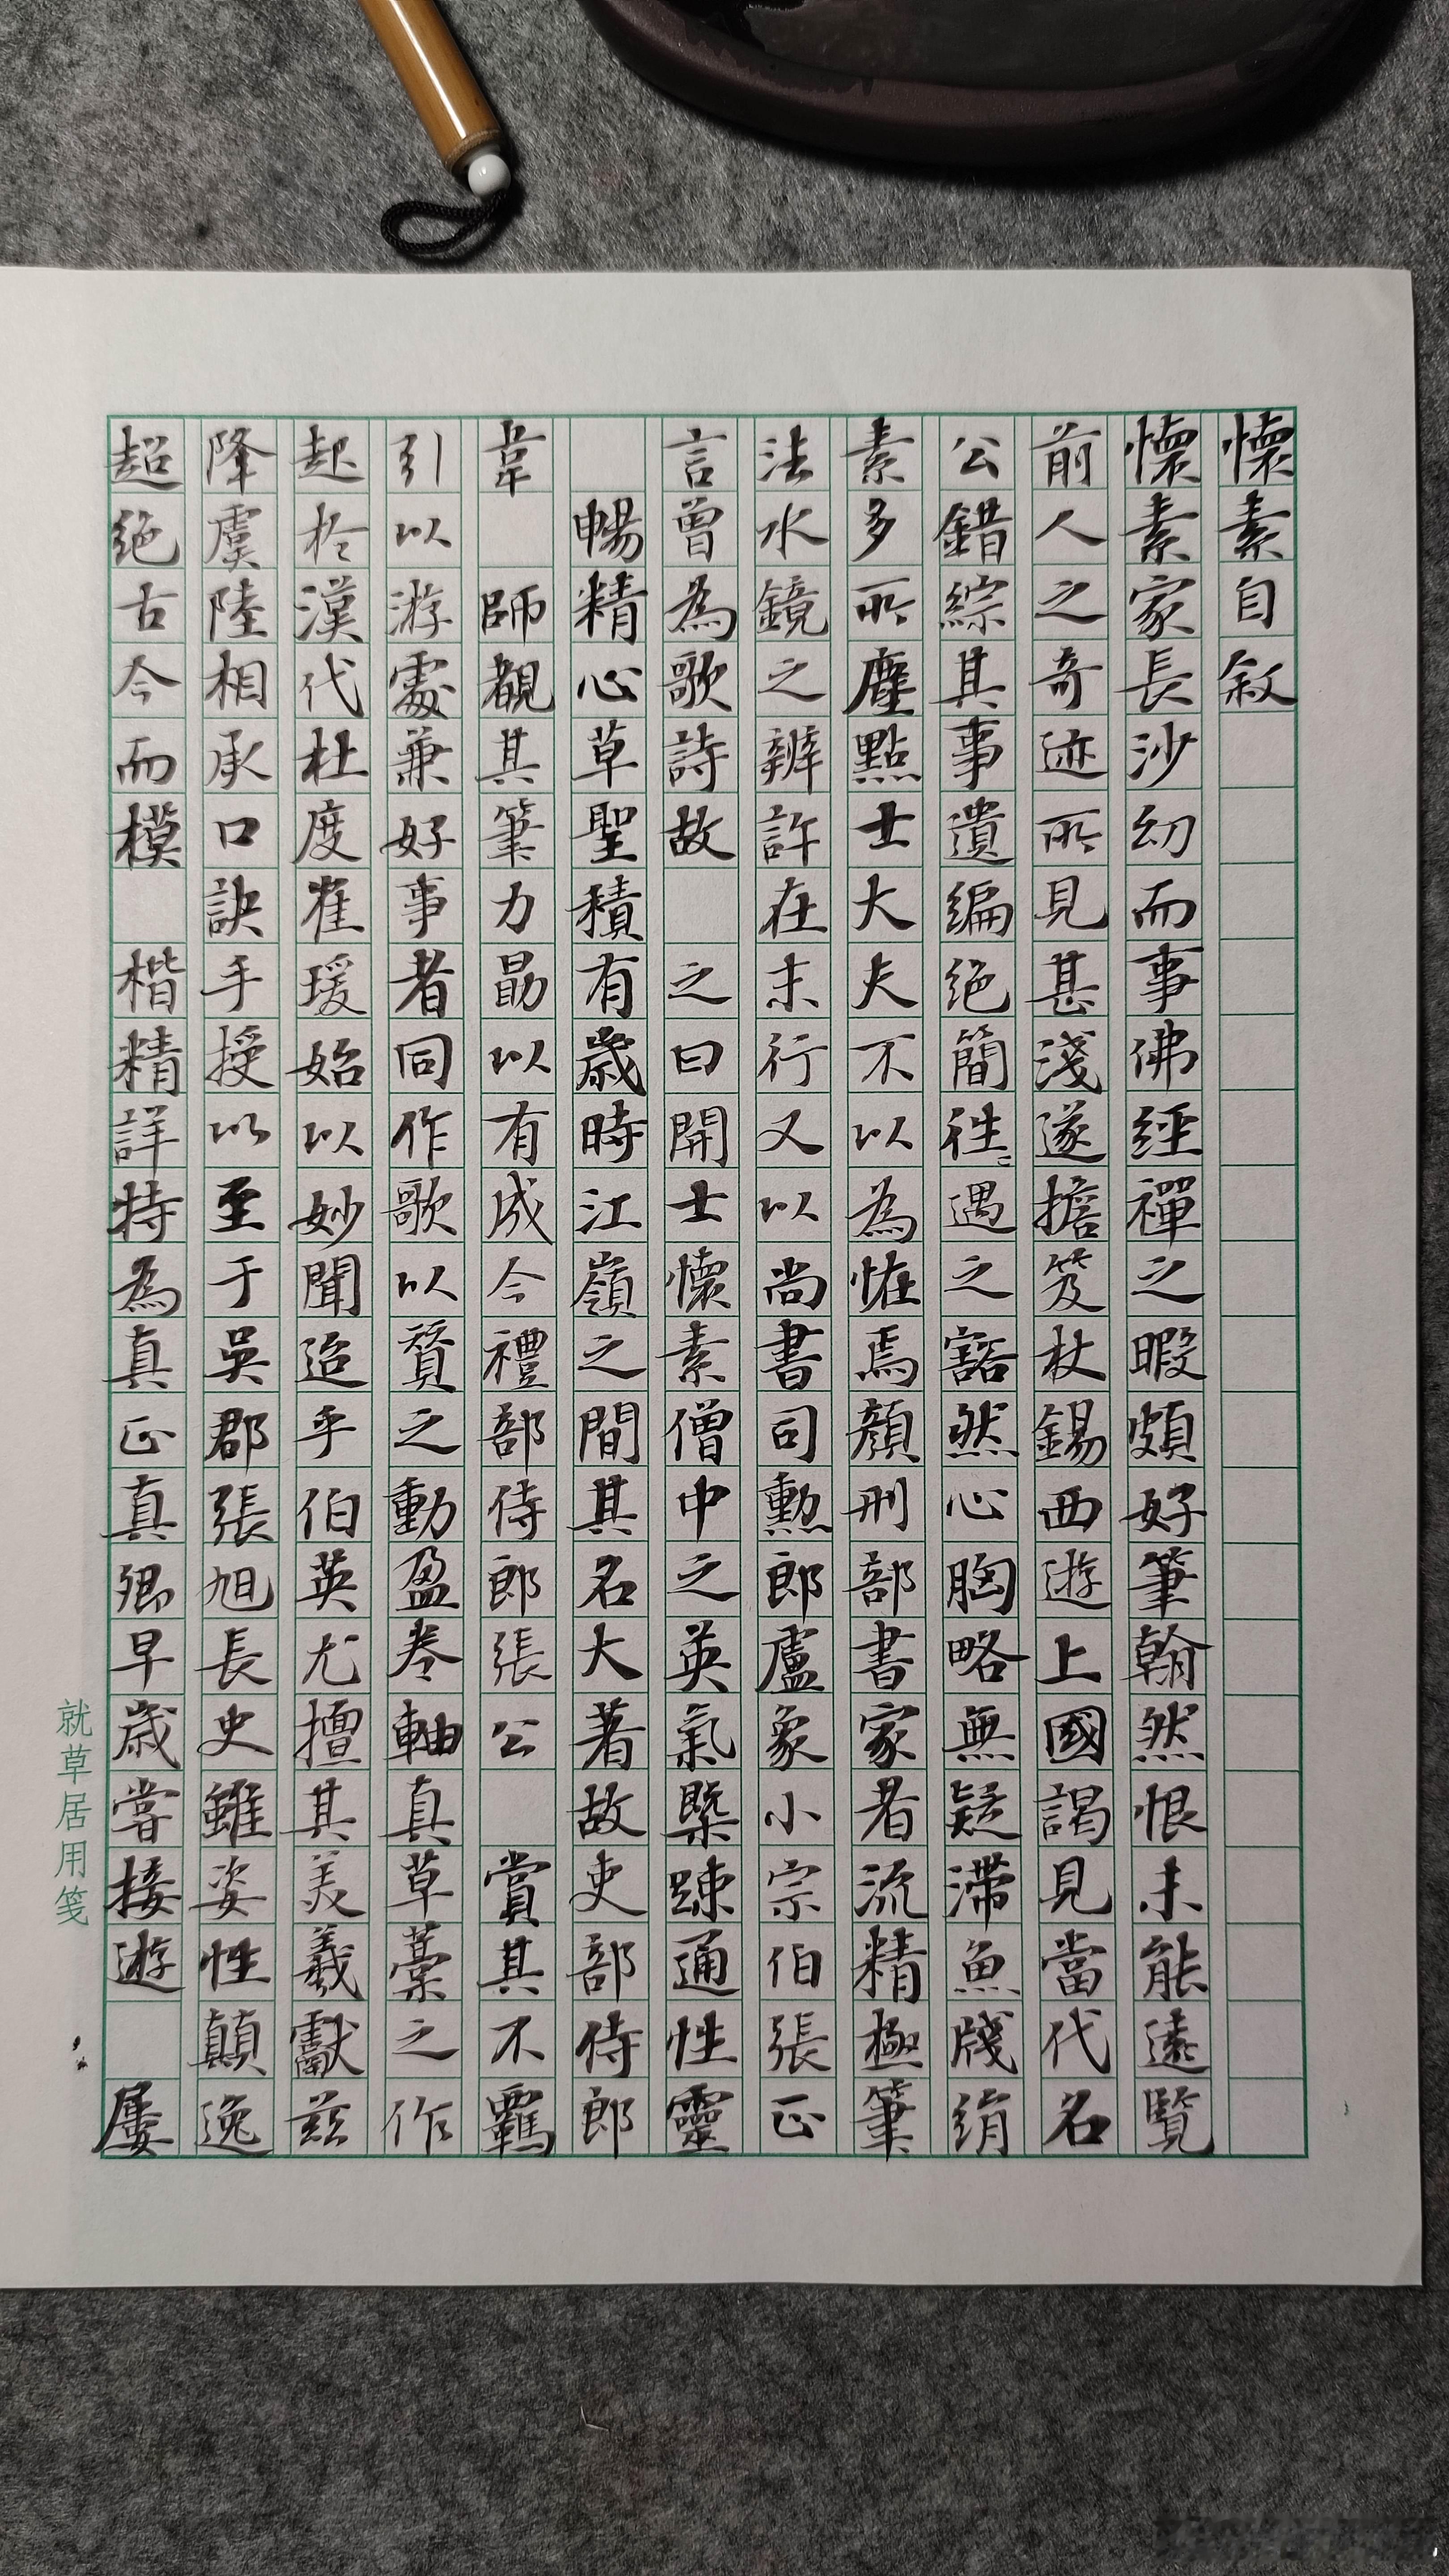 懷素自敘
懷素家長沙幼而事佛經禪之暇頗好筆翰然恨未能遠覽
前人之奇迹所見甚淺遂擔笈杖錫西遊上國謁見當代名
公錯綜其事遺編絕簡往〻遇之豁然心胸略無疑滯魚牋絹
素多所塵點士大夫不以為怪焉顏刑部書家者流精極筆
法水鏡之辨許在末行又以尚書司勳郎盧象小宗伯張正
言曾為歌詩故 之曰開士懷素僧中之英氣槩疎通性靈
暢精心草聖積有歲時江嶺之間其名大著故吏部侍郎
韋 師覩其筆力勗以有成今禮部侍郎張公 賞其不羈
引以游處兼好事者同作歌以贊之動盈卷軸真草藁之作
起於漢代杜度崔瑗始以妙聞迨乎伯英尤擅其美羲獻茲
降虞陸相承口訣手授以至于吳郡張旭長史雖姿性顛逸
超絕古今而模 楷精詳特為真正真卿早歲嘗接遊 屢
就草居用箋